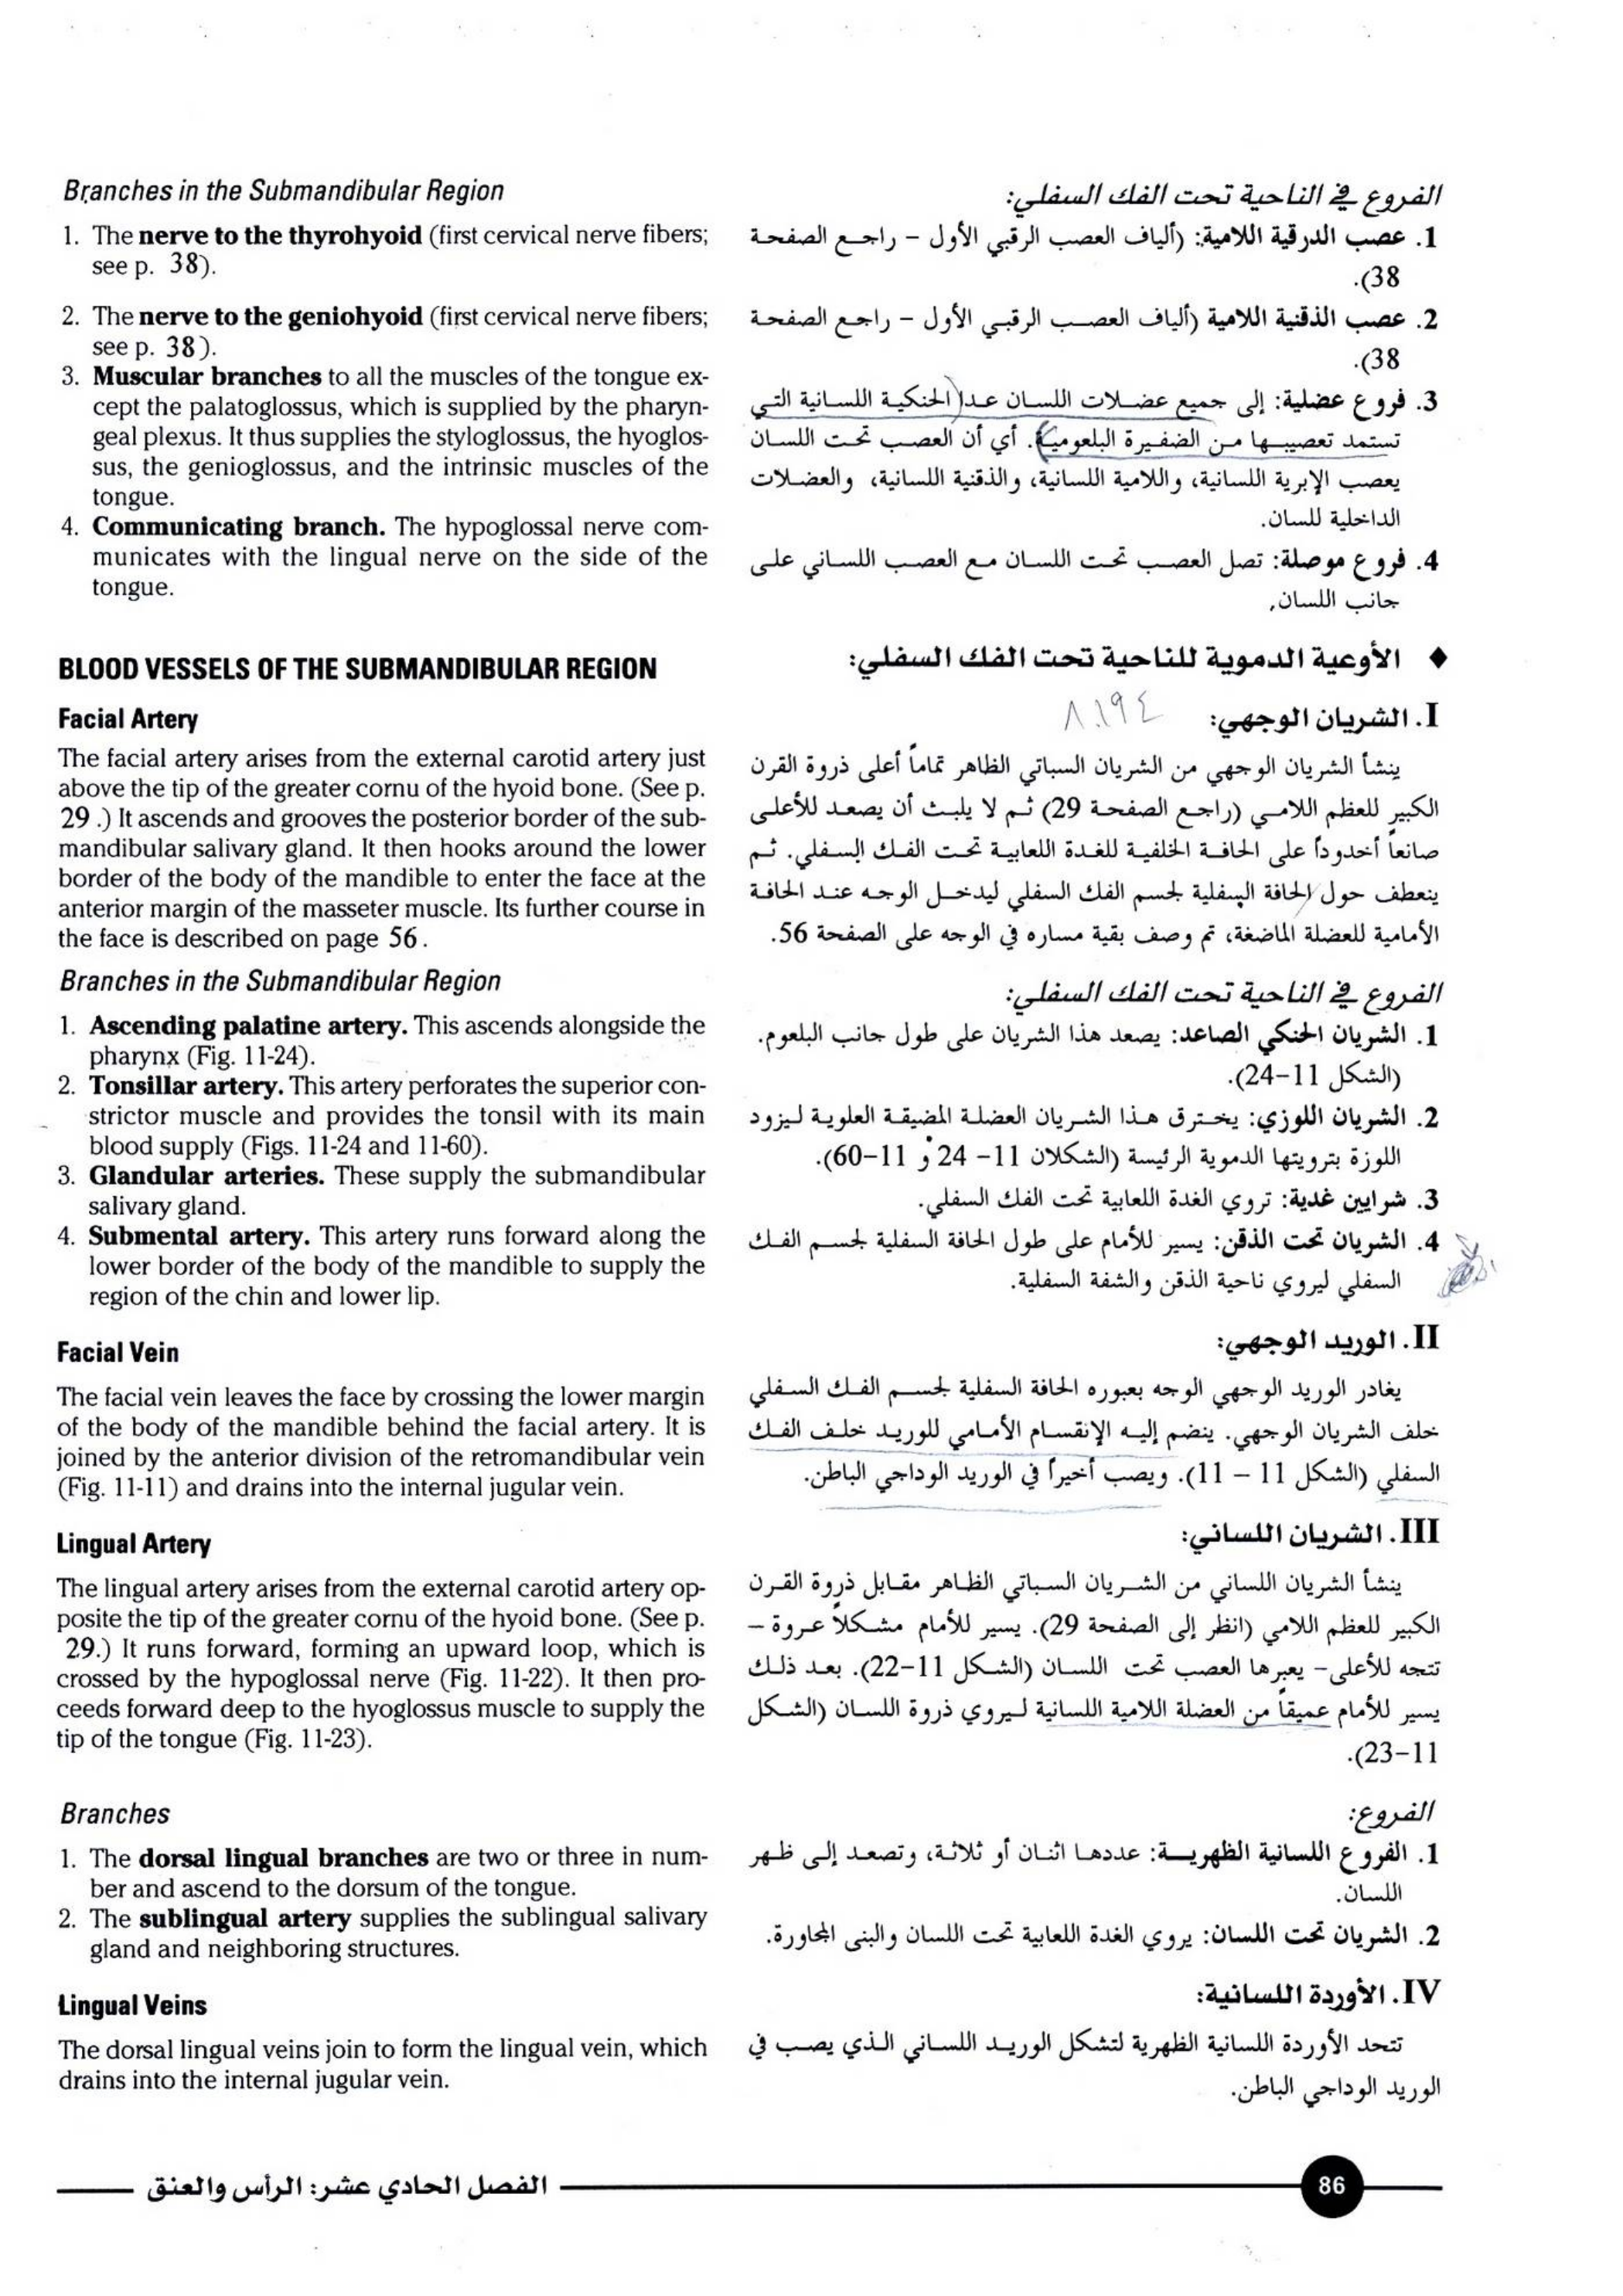 Branches in the Submandibular Region
1. The nerve to the thyrohyoid (first cervical nerve fibers;
see p. 38).
2. The nerve to the geniohyoid (first cervical nerve fibers;
see p. 38).
3. Muscular branches to all the muscles of the tongue ex-
cept the palatoglossus, which is supplied by the pharyn-
geal plexus. It thus supplies the styloglossus, the hyoglos-
sus, the genioglossus, and the intrinsic muscles of the
tongue.
4. Communicating branch. The hypoglossal nerve com-
municates with the lingual nerve on the side of the
tongue.
BLOOD VESSELS OF THE SUBMANDIBULAR REGION
Facial Artery
The facial artery arises from the external carotid artery just
above the tip of the greater cornu of the hyoid bone. (See p.
29 .) It ascends and grooves the posterior border of the sub-
mandibular salivary gland. It then hooks around the lower
border of the body of the mandible to enter the face at the
anterior margin of the masseter muscle. Its further course in
the face is described on page 56 .
Branches in the Submandibular Region
1. Ascending palatine artery. This ascends alongside the
pharynx (Fig. 11-24).
2. Tonsillar artery. This artery perforates the superior con-
strictor muscle and provides the tonsil with its main
blood supply (Figs. 11-24 and 11-60).
3. Glandular arteries. These supply the submandibular
salivary gland.
4. Submental artery. This artery runs forward along the
lower border of the body of the mandible to supply the
region of the chin and lower lip.
Facial Vein
The facial vein leaves the face by crossing the lower margin
of the body of the mandible behind the facial artery. It is
joined by the anterior division of the retromandibular vein
(Fig. 11-11) and drains into the internal jugular vein.
Lingual Artery
The lingual artery arises from the external carotid artery op-
posite the tip of the greater cornu of the hyoid bone. (See p.
29.) It runs forward, forming an upward loop, which is
crossed by the hypoglossal nerve (Fig. 11-22). It then pro-
ceeds forward deep to the hyoglossus muscle to supply the
tip of the tongue (Fig. 11-23).
Branches
1. The dorsal lingual branches are two or three in num-
ber and ascend to the dorsum of the tongue.
2. The sublingual artery supplies the sublingual salivary
gland and neighboring structures.
Lingual Veins
The dorsal lingual veins join to form the lingual vein, which
drains into the internal jugular vein.
الفروع في الناحية تحت الفك السفلي:
1. عصب الدرقية اللامية: (ألياف العصب الرقبي الأول – راجع الصفحة
38).
2. عصب الذقنية اللامية (ألياف العصب الرقبي الأول – راجع الصفحة
38).
3. فروع عضلية: إلى جميع عضلات اللسان عدا (الحنكية اللسانية التي
تستمد تعصيبها من الضفيرة البلعومية). أي أن العصب تحت اللسان
يعصب الإبرية اللسانية، واللامية اللسانية، والذقنية اللسانية، والعضلات
الداخلية للسان.
4. فروع موصلة: تصل العصب تحت اللسان مع العصب اللساني على
جانب اللسان.
♦ الأوعية الدموية للناحية تحت الفك السفلي:
I. الشريان الوجهي:
ينشأ الشريان الوجهي من الشريان السباتي الظاهر تماماً أعلى ذروة القرن
الكبير للعظم اللامي (راجع الصفحة 29) ثم لا يلبث أن يصعد للأعلى
صانعاً أخدوداً على الحافة الخلفية للغدة اللعابية تحت الفك السفلي. ثم
ينعطف حول الحافة السفلية لجسم الفك السفلي ليدخل الوجه عند الحافة
الأمامية للعضلة الماضغة، تم وصف بقية مساره في الوجه على الصفحة 56.
الفروع في الناحية تحت الفك السفلي:
1. الشريان الحنكي الصاعد: يصعد هذا الشريان على طول جانب البلعوم.
(الشكل 11–24).
2. الشريان اللوزي: يخترق هذا الشريان العضلة المضيقة العلوية ليزود
اللوزة بترويتها الدموية الرئيسة (الشكلان 11– 24 و 11–60).
3. شرايين غدية: تروي الغدة اللعابية تحت الفك السفلي.
4. الشريان تحت الذقن: يسير للأمام على طول الحافة السفلية لجسم الفك
السفلي ليروي ناحية الذقن والشفة السفلية.
II. الوريد الوجهي:
يغادر الوريد الوجهي الوجه بعبوره الحافة السفلية لجسم الفك السفلي
خلف الشريان الوجهي. ينضم إليه الإنقسام الأمامي للوريد خلف الفك
السفلي (الشكل 11 – 11). ويصب أخيراً في الوريد الوداجي الباطن.
III. الشريان اللساني:
ينشأ الشريان اللساني من الشريان السباتي الظاهر مقابل ذروة القرن
الكبير للعظم اللامي (انظر إلى الصفحة 29). يسير للأمام مشكلاً عروة –
تتجه للأعلى– يعبرها العصب تحت اللسان (الشكل 11–22). بعد ذلك
يسير للأمام عميقاً من العضلة اللامية اللسانية ليروي ذروة اللسان (الشكل
11–23).
الفروع:
1. الفروع اللسانية الظهرية: عددها اثنان أو ثلاثة، وتصعد إلى ظهر
اللسان.
2. الشريان تحت اللسان: يروي الغدة اللعابية تحت اللسان والبنى المجاورة.
IV. الأوردة اللسانية:
تتحد الأوردة اللسانية الظهرية لتشكل الوريد اللساني الذي يصب في
الوريد الوداجي الباطن.
الفصل الحادي عشر: الرأس والعنق
86